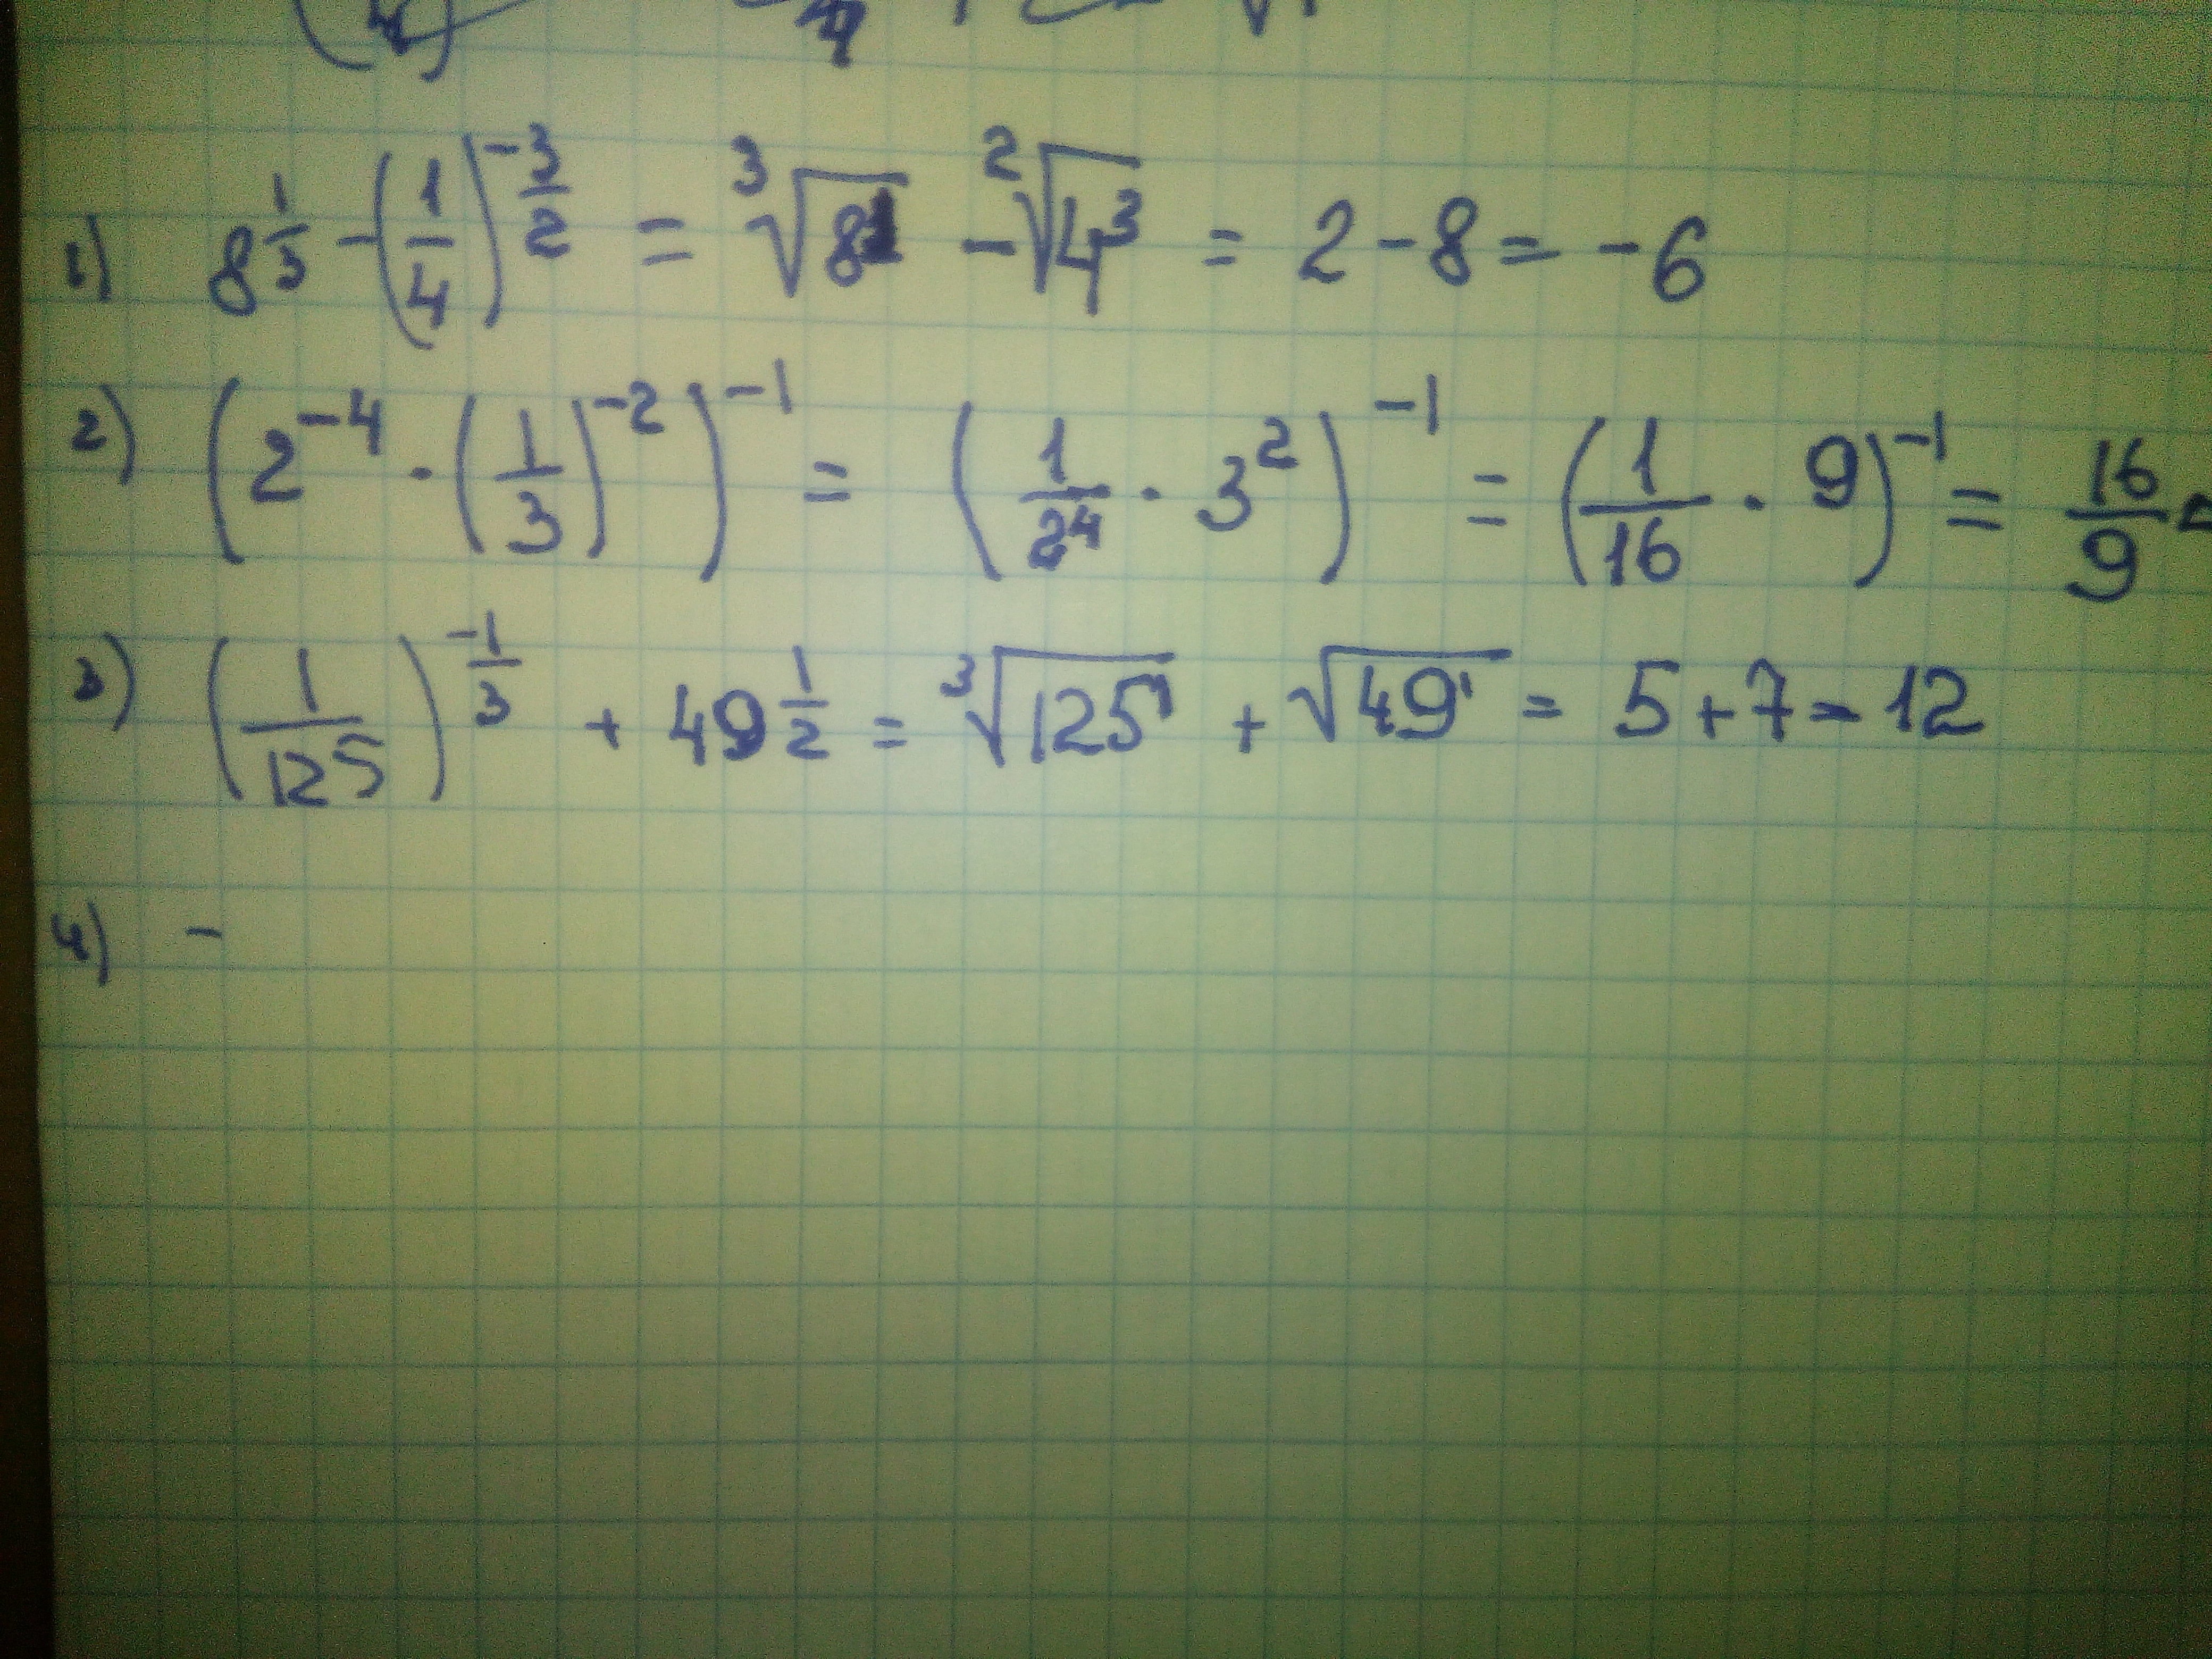 1) 8^{\frac{1}{3}} - (\frac{1}{4})^{-\frac{3}{2}} = \sqrt[3]{8} - \sqrt[2]{4^3} = 2 - 8 = -6
2) (2^{-4} · (\frac{1}{3})^{-2})^{-1} = (\frac{1}{2^4} · 3^2)^{-1} = (\frac{1}{16} · 9)^{-1} = \frac{16}{9} =
3) (\frac{1}{125})^{-\frac{1}{3}} + 49^{\frac{1}{2}} = \sqrt[3]{125} + \sqrt{49} = 5 + 7 = 12
4) -